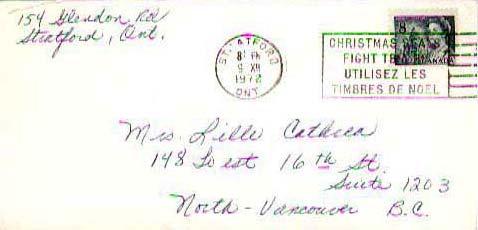 154 Glendon Rd
Stratford, Ont.
STRATFORD
PM
9 XII
1972
ONT
CHRISTMAS SEALS
FIGHT TB
UTILISEZ LES
TIMBRES DE NOEL
8
CANADA
Mrs. Lille
148 West 16th St.
Suite 1203
North-Vancouver B.C.